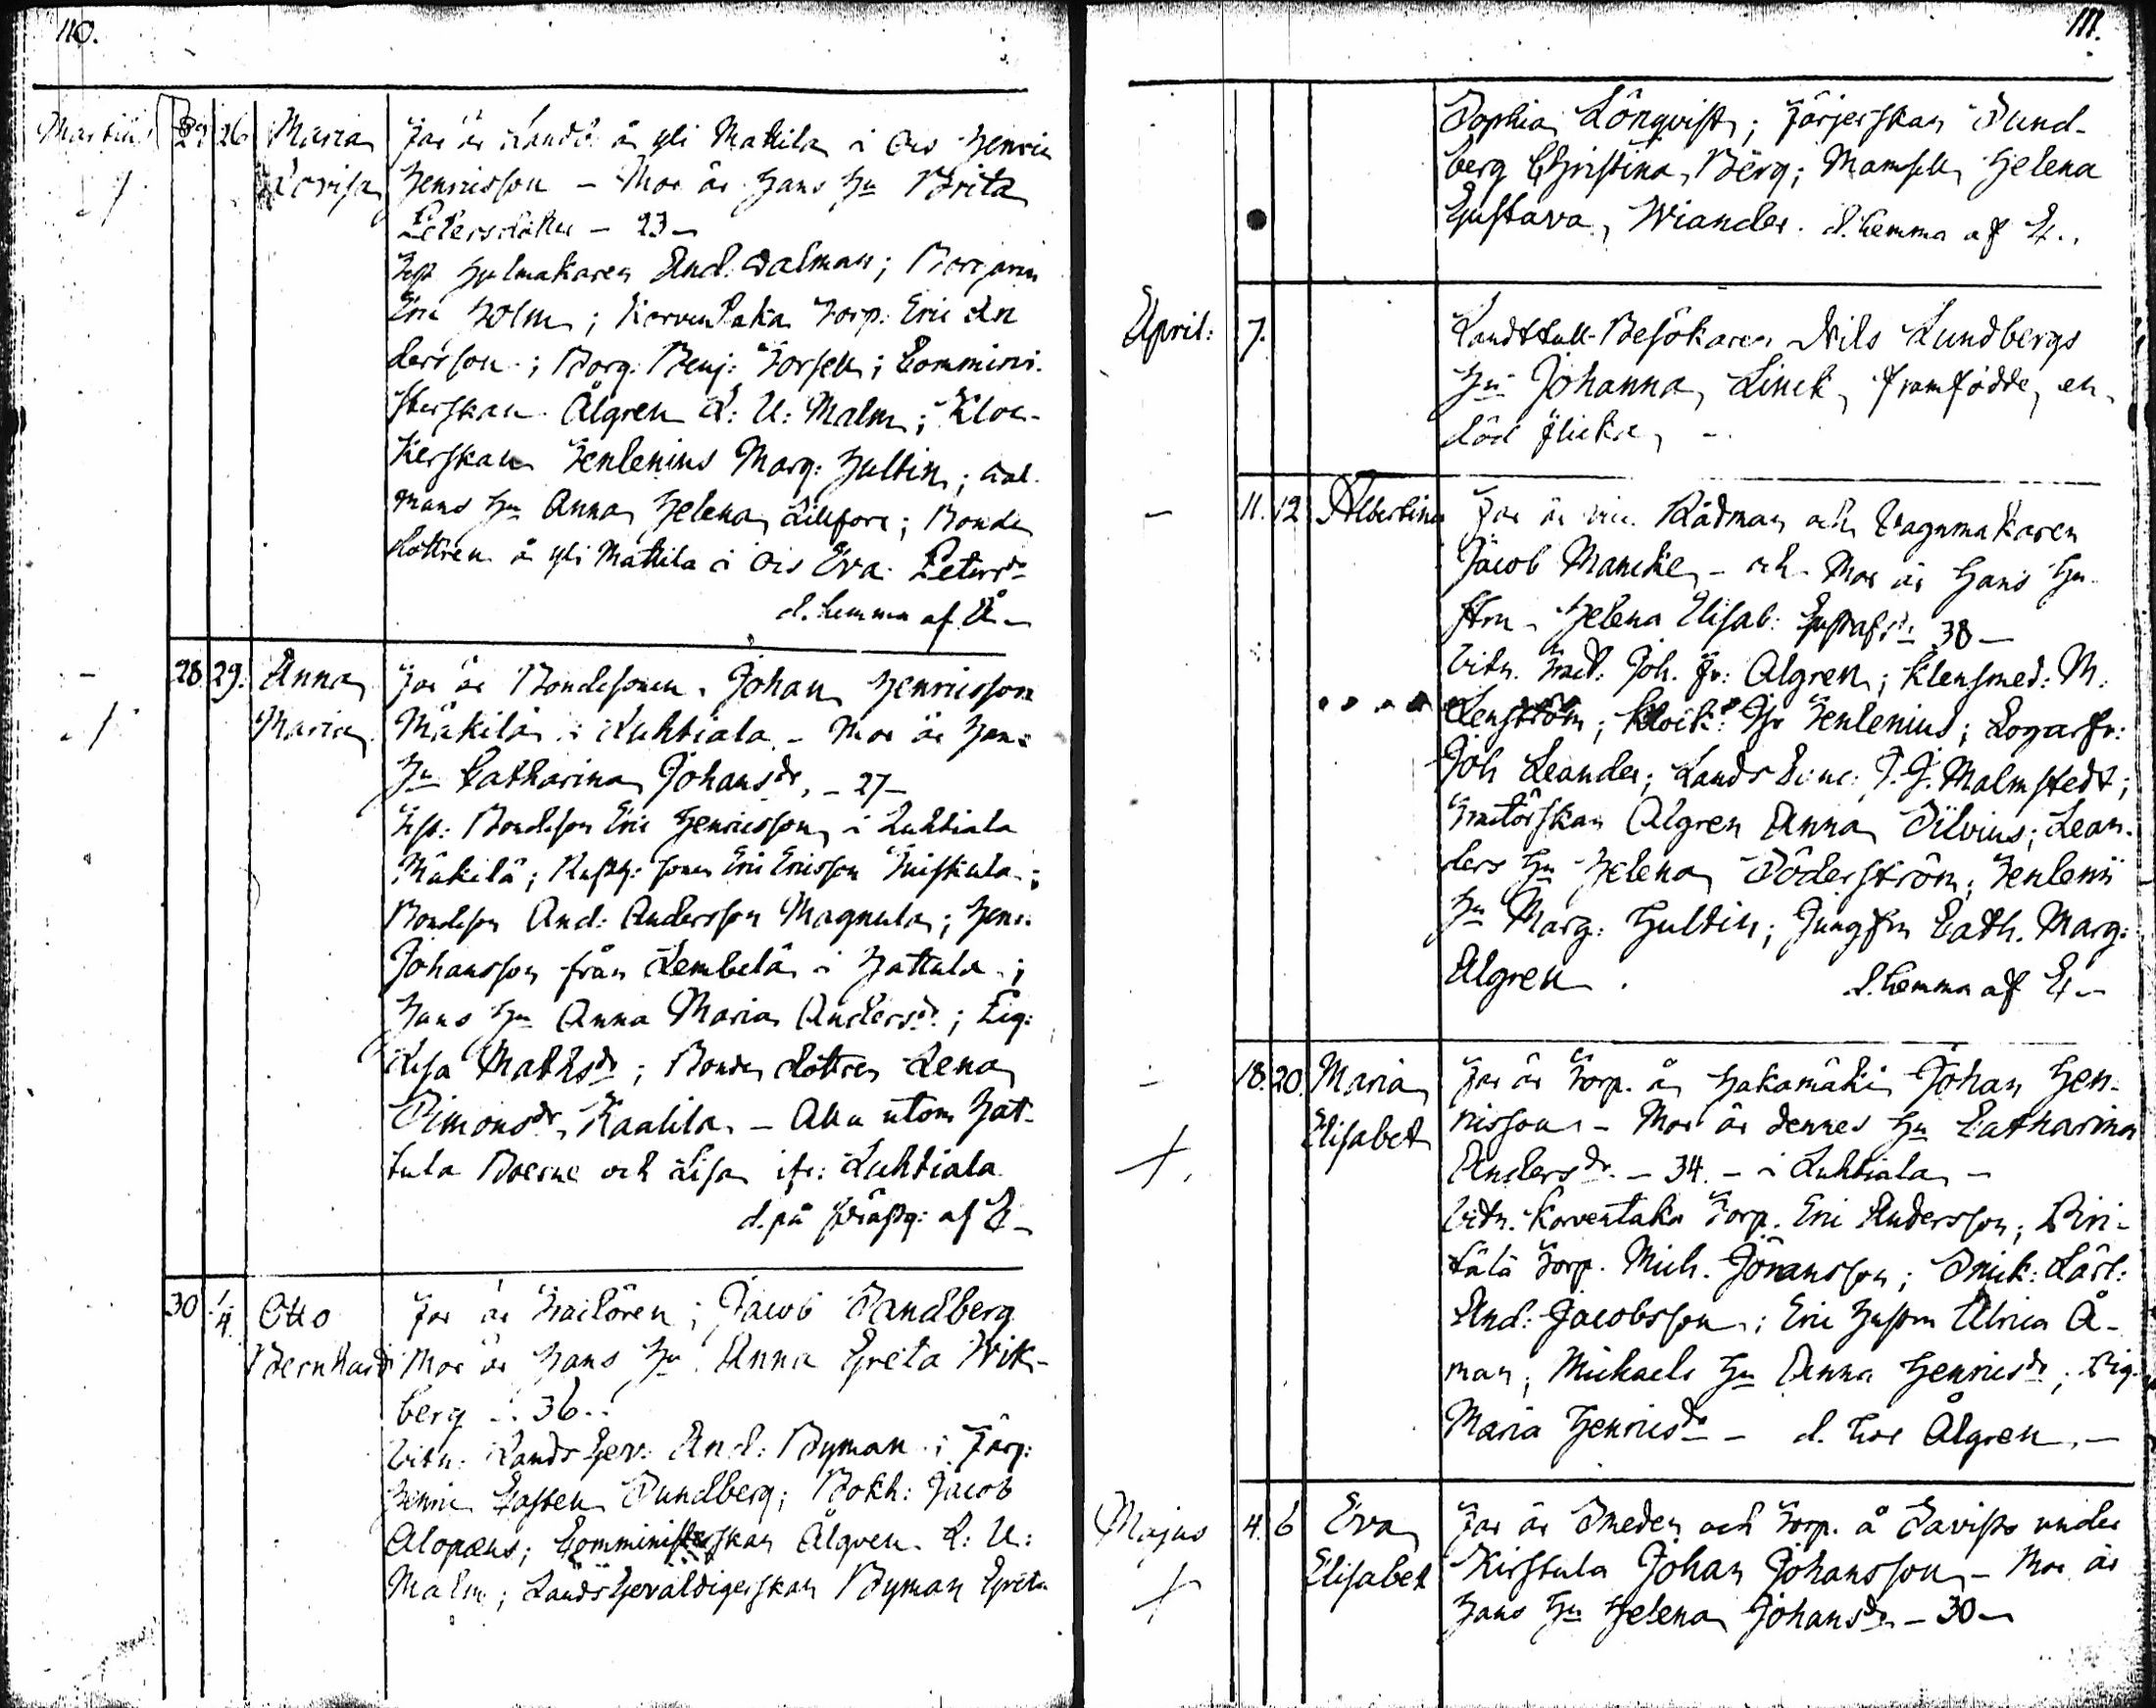 110.
Martius 26 Maria Far är å yli Mattila i Ois Henric
Lovisa Henricsson – Mor är hans Hu Brita
Petersdotter – 23 –
Hjulmakaren And. Dalman;
Eric Holm; Korventaka Torp. Eric An
dersson; Borg. Benj: Forsell; Comminis-
terskan Ålgren L: U: Malm; Kloc-
kerskan Tenlenius Marg: Hultin; Dal
mans Hu Anna Helena Lillfors; Bonde
dottren å yli Mattila i Ois Eva Petersdr
d. hemma af Å –
28 29. Anna Far är Bondesonen Johan Henricsson
Maria Mäkilä i Luhtiala – Mor är hans
Hu Catharina Johansdr, – 27 –
Bondeson Eric Henricsson i Luhtiala
Mäkilä; Rusth: sonen Eric Ericsson
Bondeson And: Andersson Magnula; Henr.
Johansson från Lembelä i Hattula;
hans Hu Anna Maria Andersdr; Pig:
Lisa Mathsdr; Bonde dottren Lena
Simonsdr Kaalila – Alla utom Hat-
tula Boerne och Lisa ifr: Luhtiala
d. på prästg: af Å –
30 1/4 Otto Far är Jacob Sandberg
Bernhard Mor är hans Hu Anna Greta Wik-
berg – 36 –
Vitn: Lands Gev: And: Byman; Färg:
Henric Gusten Sundberg; Bokh: Jacob
Alopæus; Comministerskan Ålgren L: U:
Malm; Landsgevaldigerskan Byman Greta
111.
Sophia Lönqvist; Färjerskan Sund-
berg Christina Berg; Mamsell Helena
Gustava Wiander. d. hemma af Å.
April: 7. Landttull-Besökaren Nils Lundbergs
Hu Johanna Linck, framfödde en
död flicka –
– 11. 12 Albertina Far är vice Rådman och Vagnmakaren
Jacob Mancke – och Mor är hans Hu-
stru Helena Elisab: Gustafsdr 38 –
Vitn. Joh. Fr: Algren; Klensmed: M.
Lenström; Klock: Tenlenius;
Joh Leander; Lands J. J. Malmstedt;
Algren Anna Silvius; Lean-
ders Hu Helena Söderström; Tenlenii
Hu Marg: Hultin; Jungfru Cath. Marg:
Algren. d. hemma af Å –
– 18. 20. Maria Far är Torp. å Hakamäki Johan Hen-
Elisabet ricsson – Mor är dennes Hu Catharina
Andersdr – 34 – i Luhtiala –
Vitn. Korventaka Torp. Eric Andersson;
Torp. Mich. Jöransson; Snick: Lärl:
And: Jacobsson; Eric Hustru Ulrica Å-
man; Michaels Hu Anna Henricsdr; Pig.
Maria Henricsdr – d. hos Ålgren –
Majus 4. 6 Eva Far är Smeden och Torp. å Savisto under
Elisabet Kirstula Johan Johansson – Mor är
hans Hu Helena Johansdr – 30 –